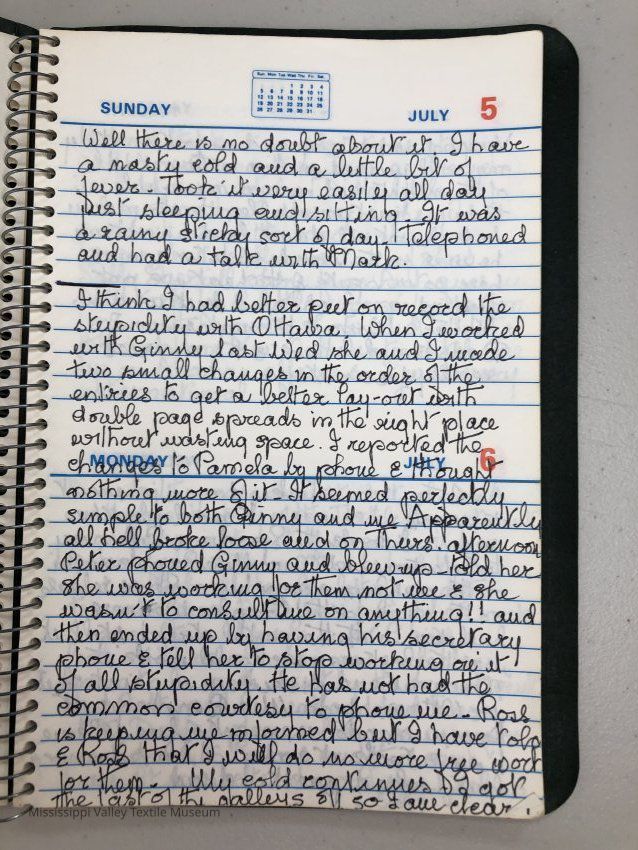 Sun. Mon Tue. Wed Thu. Fri. Sat.
1 2 3 4
5 6 7 8 9 10 11
12 13 14 15 16 17 18
19 20 21 22 23 24 25
26 27 28 29 30 31
SUNDAY JULY 5
Well there is no doubt about it, I have
a nasty cold and a little bit of
fever. Took it very easily all day
just sleeping and sitting. It was
a rainy sticky sort of day. Telephoned
and had a talk with Mark.
I think I had better put on record the
stupidity with Ottawa. When I worked
with Ginny last Wed she and I made
two small changes in the order of the
entries to get a better lay-out with
double page spreads in the right place
without wasting space. I reported the
MONDAY JULY 6
changes to Pamela by phone & thought
nothing more of it. It seemed perfectly
simple to both Ginny and me. Apparently
all hell broke loose and on Thurs. afternoon
Peter phoned Ginny and blew up. Told her
she was working for them not me & she
wasn't to consult me on anything!! and
then ended up by having his secretary
phone & tell her to stop working on it
of all stupidity. He has not had the
common courtesy to phone me. Ross
is keeping me informed but I have told
& Ross that I will do no more free work
for them. My cold continues. got
the last of the galleys off so I am clear.
Mississippi Valley Textile Museum